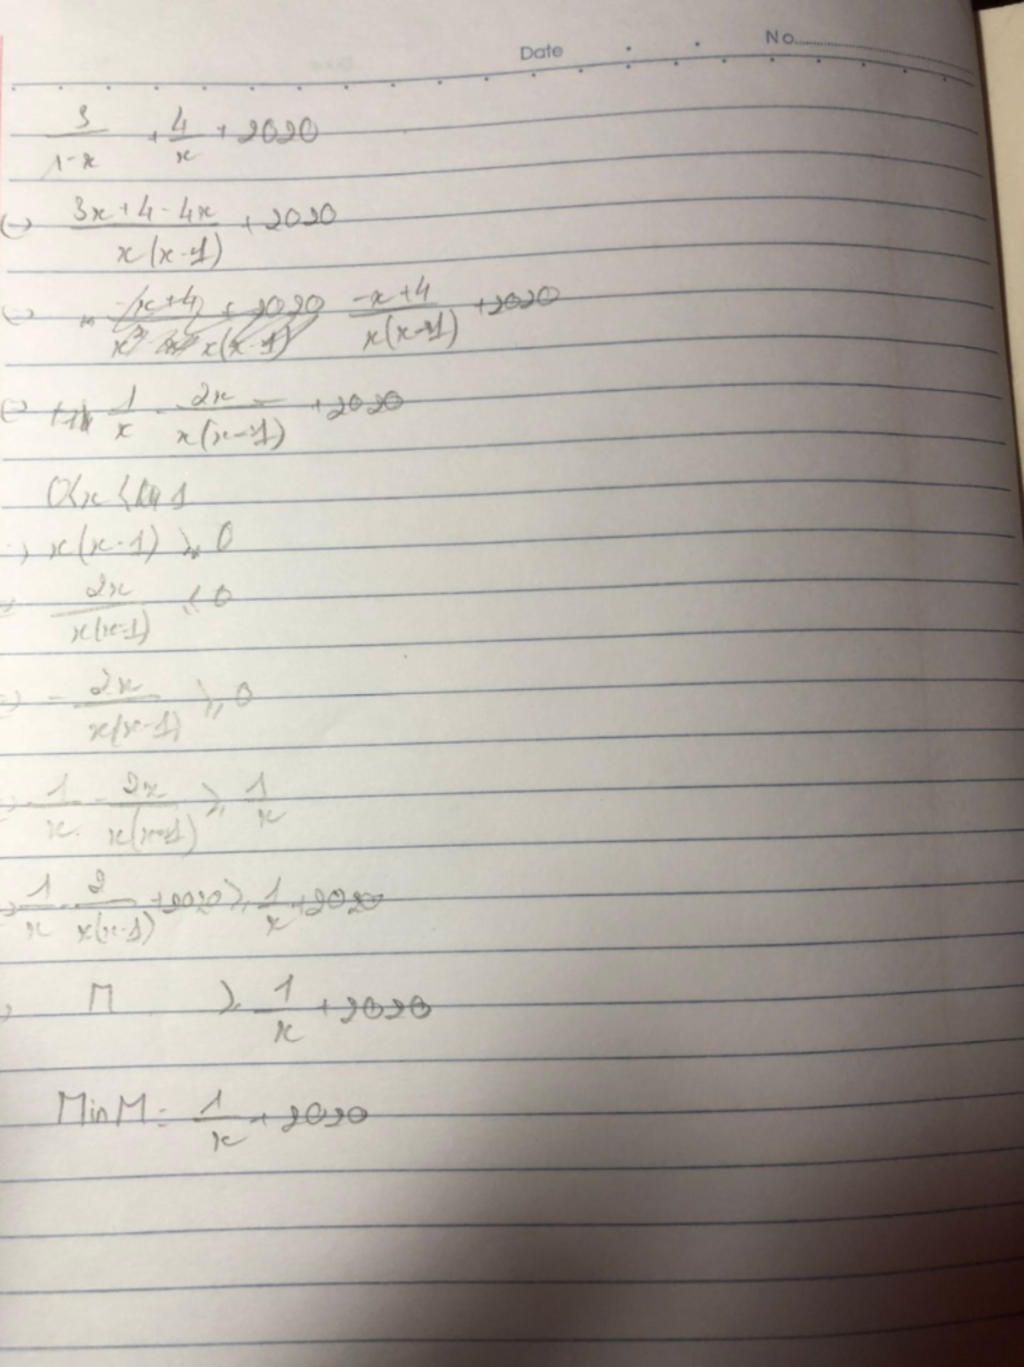 Date No
3/(1-x) + 4/x + 2020
(-) (3x+4-4x)/(x(x-1)) + 2020
(-x+4)/(x(x-1)) + 2020
1/x - 2x/(x(x-1)) + 2020
0<x<1
x(x-1) ⩾ 0
2x/(x(x-1)) ⩽ 0
- 2x/(x(x-1)) ⩾ 0
1/x - 2x/(x(x-1)) ⩾ 1/x
1/x - 2/(x(x-1)) + 2020 ⩾ 1/x + 2020
M ⩾ 1/x + 2020
Min M = 1/x + 2020